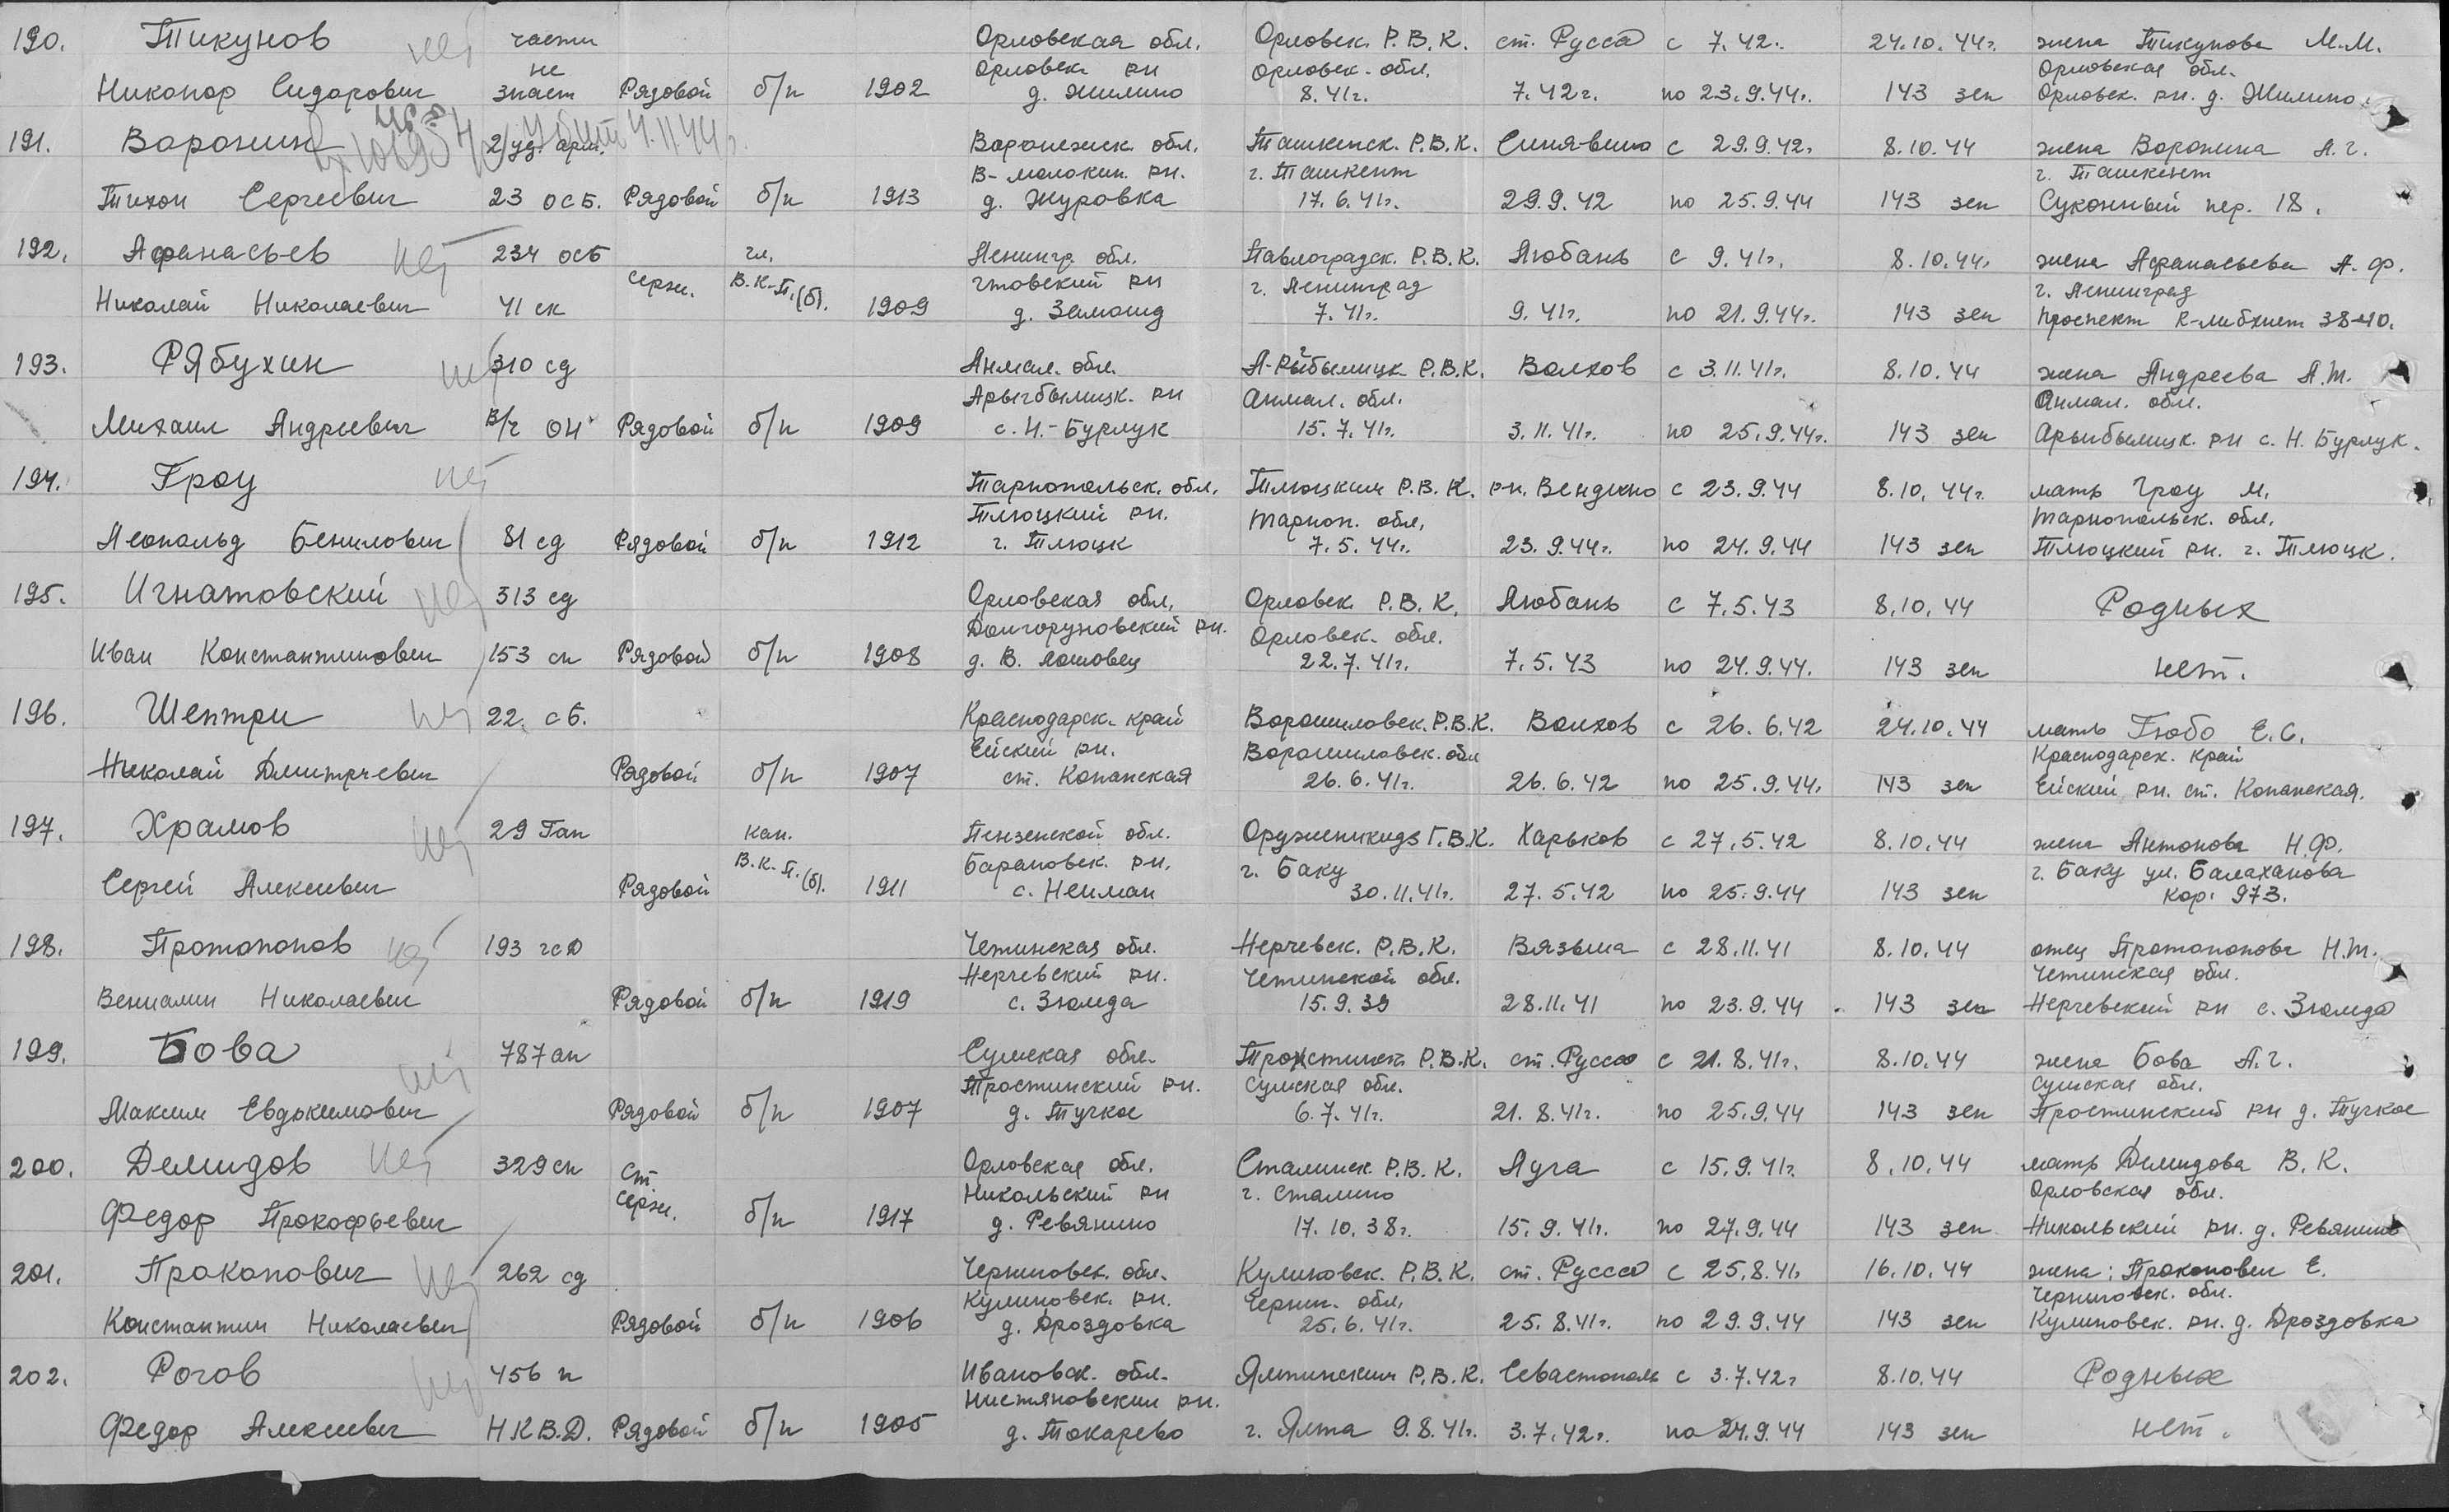 190. Тикунов нет части Орловская обл. Орловск. Р.В.К. ст. Русса с 7.42г. 24.10.44г. жена Тикунова М.М.
не Орловск. рн Орловск. обл. Орловская обл.
Никонор Сидорович знает Рядовой б/п 1902 д. Жилино 8.41г. 7.42г. по 23.9.44г. 143 зсп Орловск. рн. д. Жилино.
191. Воронин 2 уд. арм. Воронежск. обл. Ташкенск. Р.В.К. Синявино с 29.9.42. 8.10.44 жена Воронина А.Г.
В-молокин. рн. г. Ташкент г. Ташкент
Тихон Сергеевич 23 ОСБ. Рядовой б/п 1913 д. Журовка 17.6.41г. 29.9.42 по 25.9.44 143 зсп Суконный пер. 18.
192. Афанасьев нет 234 осб чл. Ленингр. обл. Павлоградск. Р.В.К. Любань с 9.41г. 8.10.44г. жена Афанасьева А.Ф.
серж. В.К.П.(б). чтовский рн г. Ленинград г. Ленинград
Николай Николаевич 41 ск 1909 д. Замошд 7.41г. 9.41г. по 21.9.44г. 143 зсп проспект К-либхнет 38-40.
193. Рябухин нет 310 сд Акмал. обл. А-Рыгбылицк Р.В.К. Волхов с 3.11.41г. 8.10.44 жена Андреева А.Т.
Арыгбылицк. рн Акмал. обл. Акмал. обл.
Михаил Андреевич в/ч ОН Рядовой б/п 1909 с. Н.-Бурлук 15.7.41г. 3.11.41г. по 25.9.44г. 143 зсп Арыгбылицк. рн с. Н. Бурлук.
194. Гроу нет Тарнопольск. обл. Тлюцким Р.В.К. рн. Вендено с 23.9.44 8.10.44г. мать Гроу М.
Тлюцкий рн. Тарноп. обл. Тарнопольск. обл.
Леопольд Бенилович 81 сд Рядовой б/п 1912 г. Тлюцк 7.5.44г. 23.9.44г. по 24.9.44 143 зсп Тлюцкий рн. г. Тлюцк.
195. Игнатовский нет 313 сд Орловская обл. Орловск. Р.В.К. Любань с 7.5.43 8.10.44 Родных
Долгоруковский рн. Орловск. обл.
Иван Константинович 153 сп Рядовой б/п 1908 д. В. Ломовец 22.7.41г. 7.5.43 по 24.9.44. 143 зсп нет.
196. Шептри нет 22. сб. Краснодарск. край Ворошиловск. Р.В.К. Волхов с 26.6.42 24.10.44 мать Гюбо Е.С.
Ейский рн. Ворошиловск. обл Краснодарск. край
Николай Дмитриевич Рядовой б/п 1907 ст. Копанская 26.6.41г. 26.6.42 по 25.9.44. 143 зсп Ейский рн. ст. Копанская.
197. Храмов нет 29 Гап кан. Пензенской обл. Орджоникидз Г.В.К. Харьков с 27.5.42 8.10.44 жена Антонова Н.Ф.
В.К.П.(б). Барановск. рн. г. Баку г. Баку ул. Балаханова
Сергей Алексеевич Рядовой 1911 с. Нейман 30.11.41г. 27.5.42 по 25.9.44 143 зсп кор. 973.
198. Протопопов нет 193 гсд Четинская обл. Нерчевск. Р.В.К. Вязьма с 28.11.41 8.10.44 отец Протопопова Н.Т.
Нерчевский рн. Четинской обл. Четинская обл.
Вениамин Николаевич Рядовой б/п 1919 с. Зюлмда 15.9.39 28.11.41 по 23.9.44 143 зсп Нерчевский рн с. Зюлмда
199. Бова нет 787 ап Сумская обл. Тростинск. Р.В.К. ст. Русса с 21.8.41г. 8.10.44 жена Бова А.Г.
Тростинский рн. Сумская обл. Сумская обл.
Максим Евдокимович Рядовой б/п 1907 д. Тучное 6.7.41г. 21.8.41г. по 25.9.44 143 зсп Тростинский рн д. Тучное
200. Демидов нет 329 сп ст Орловская обл. Сталинск. Р.В.К. Луга с 15.9.41г. 8.10.44 мать Демидова В.К.
серж. Никольский рн г. Сталино Орловская обл.
Федор Прокофьевич б/п 1917 д. Ревякино 17.10.38г. 15.9.41г. по 27.9.44 143 зсп Никольский рн. д. Ревякино
201. Прокопович нет 262 сд Черниговск. обл. Куликовск. Р.В.К. ст. Русса с 25.8.41г 16.10.44 жена: Прокопович Е.
Куликовск. рн. Черниг. обл. Черниговск. обл.
Константин Николаевич Рядовой б/п 1906 д. Дроздовка 25.6.41г. 25.8.41г. по 29.9.44 143 зсп Куликовск. рн. д. Дроздовка
202. Рогов нет 456 п Ивановск. обл. Ялтинским Р.В.К. Севастополь с 3.7.42г 8.10.44 Родных
Нистяновским рн.
Федор Алексеевич Н.К.В.Д. Рядовой б/п 1905 д. Токарево г. Ялта 9.8.41г. 3.7.42г. по 24.9.44 143 зсп нет.